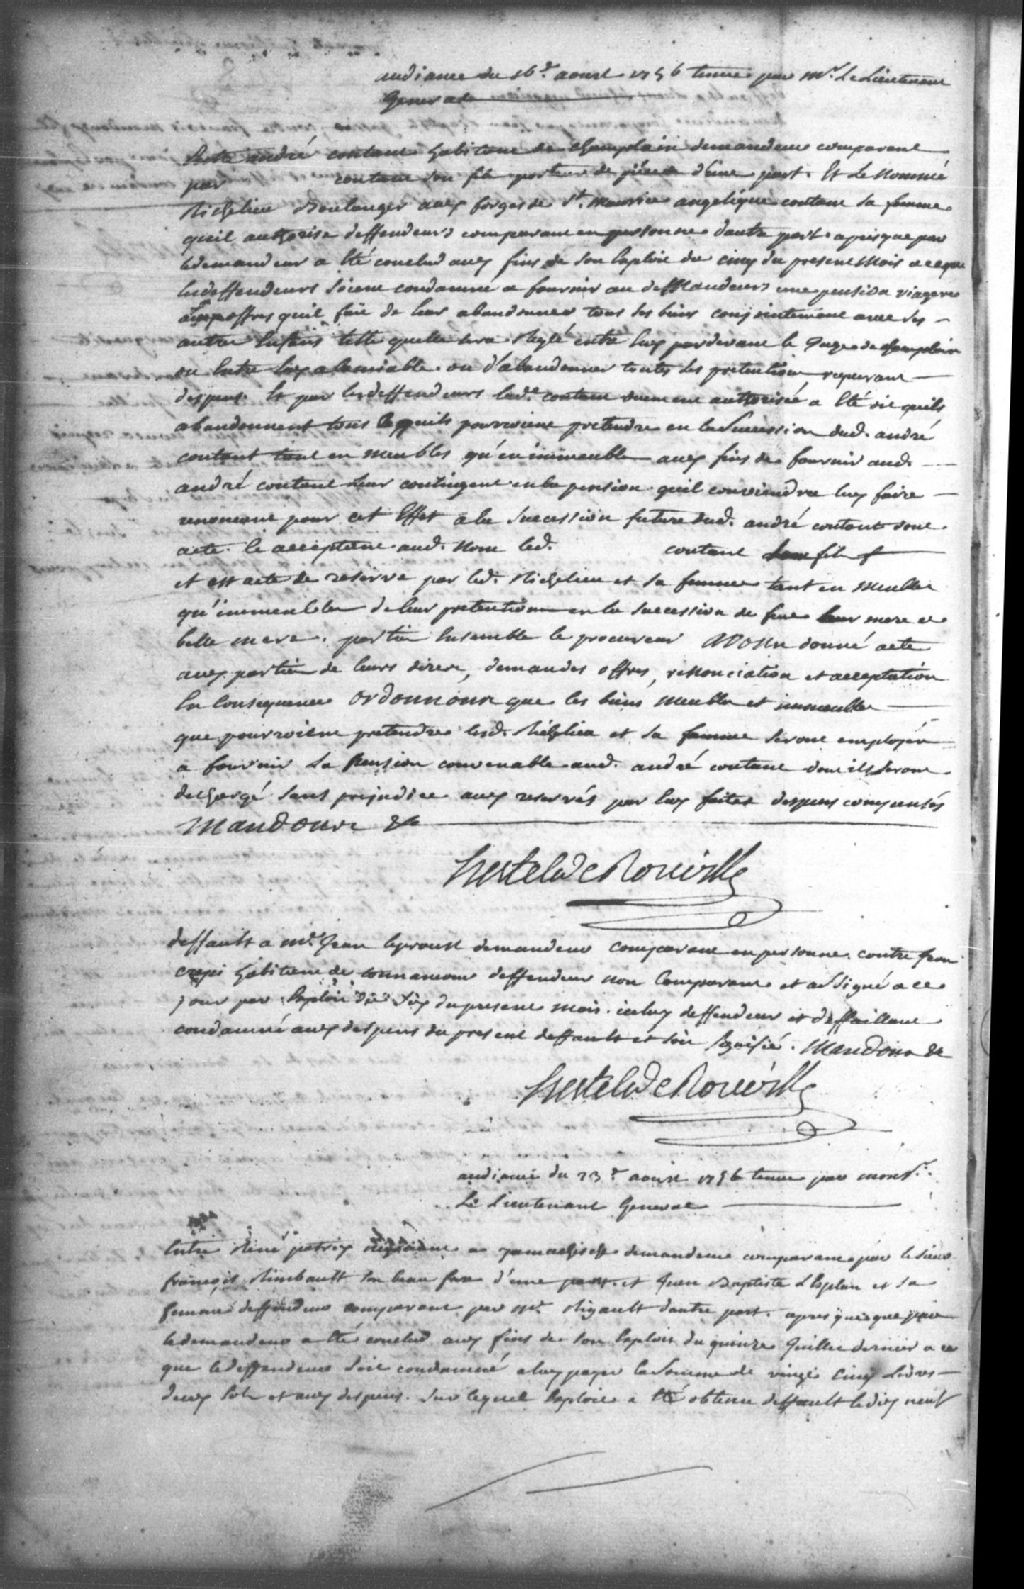 audiance du 16e. aoust 1756 tenue par Mr. Le Lieutenant
General
Entre andré contant habitant de Champlain demandeur comparant
par contant son fils porteur de pièces d'une part. Et Le Nommé
Richelieu Boulanger aux forges de St. Maurice angelique contant sa femme
qu'il authorise deffendeurs comparant en personne d'autre part. apres que par
le demandeur a Eté conclud aux fins de son Exploit du cinq du present Mois a ce que
les deffendeurs soient condamné a fournir au demandeur une pension viagere
aux offres qu'il fait de leur abandonner tous ses biens conjointement avec ses
autres Enfans telle quelle sera Reglé entre Eux pardevant le Juge de Champlain
ou Entre Eux a lamiable. ou d'abandonner toutes les pretention requerant
despens. Et par les deffendeurs lade. contant duement authorisée a Eté dit quils
abandonnent tous ce quils pourroient pretendre en la Succession dud. andré
contant tant en Meubles qu'en immeuble aux fins de fournir aud.
andré contant Leur contingent en la pension quil conviendra luy faire
renoncant pour cet Effet a la Succession future dud. andré contant dont
acte. Ce acceptant aud. Nom led. contant fils
et acte de reserve par led. Richelieu et sa femme tant en Meuble
qu'immeubles de leur pretention en la Succession de feue leur mere et
belle mere. partie Ensemble le procureur avons donné acte
aux partien de leurs dires, demandes offres, rEnonciation et acceptation
En Consequence Ordonnons que les biens Meuble et immeuble
que pourroient pretendre lesd. Richelieu et sa femme seront employés
a fournir La Pension convenable aud. andré contant dont ils seront
dechargé sans prejudice aux reserves par Eux faites despens compensés
Mandons &a
Hertel de Rouville
deffault a Mr. Jean Leproust demandeur comparant en personne. contre Jean
Crepi habitant de deffendeur non Comparant et assigné a ce
jour par Exploit du Six du present Mois. icelluy deffendeur et deffaillant
condamné aux despens du present deffault et soit signifié. Mandons &a
Hertel de Rouville
audiance du 23e. aoust 1756 tenue par Monsr.
Le Lieutenant General
Entre René patry a yamachiche demandeur comparant par le Sieur
françois Rimbault son beau frere d'une part. et Jean Baptiste et Sa
femme deffendeur comparant par Mr. Rigault d'autre part. apres que par
le demandeur a Eté conclud aux fins de son Exploit du quinze Juillet dernier a ce
que le deffendeur soit condamné a luy payer la Somme de vingt Cinq Livres
deux sols et aux despens. Sur lequel Exploit a Eté obtenu deffault le dix neuf